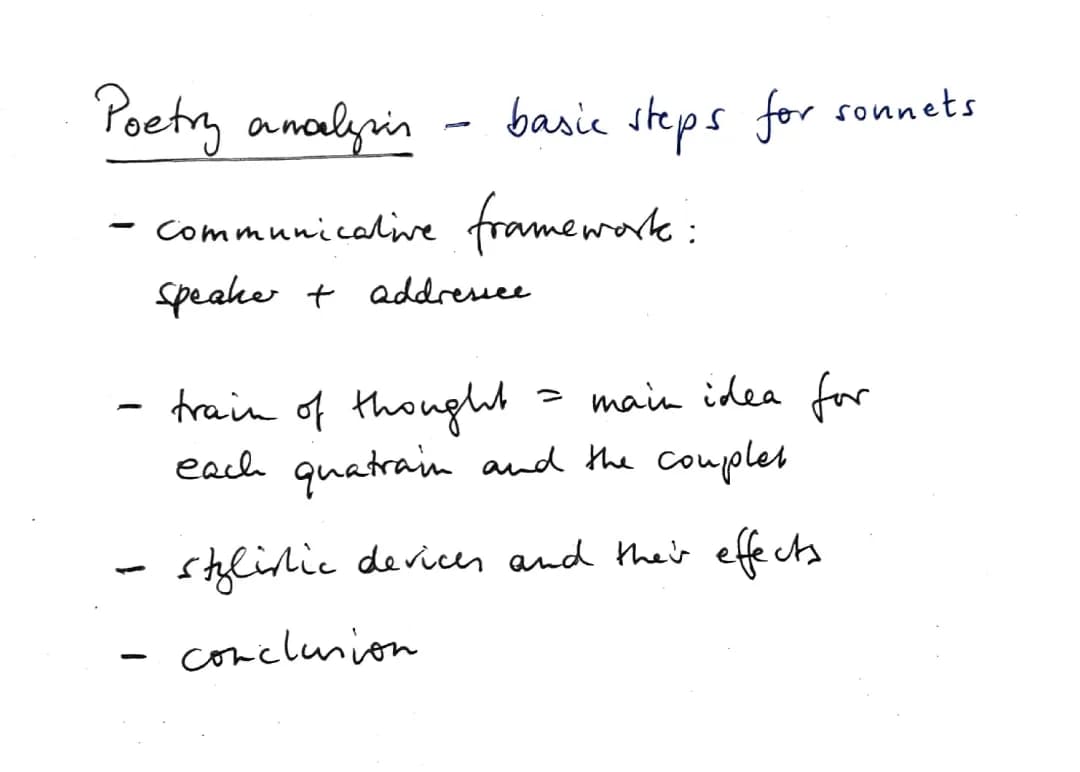 Poetry analysis - basic steps for sonnets
- communicative framework:
speaker + addressee
- train of thought = main idea for
each quatrain and the couplet
- stylistic devices and their effects
- conclusion